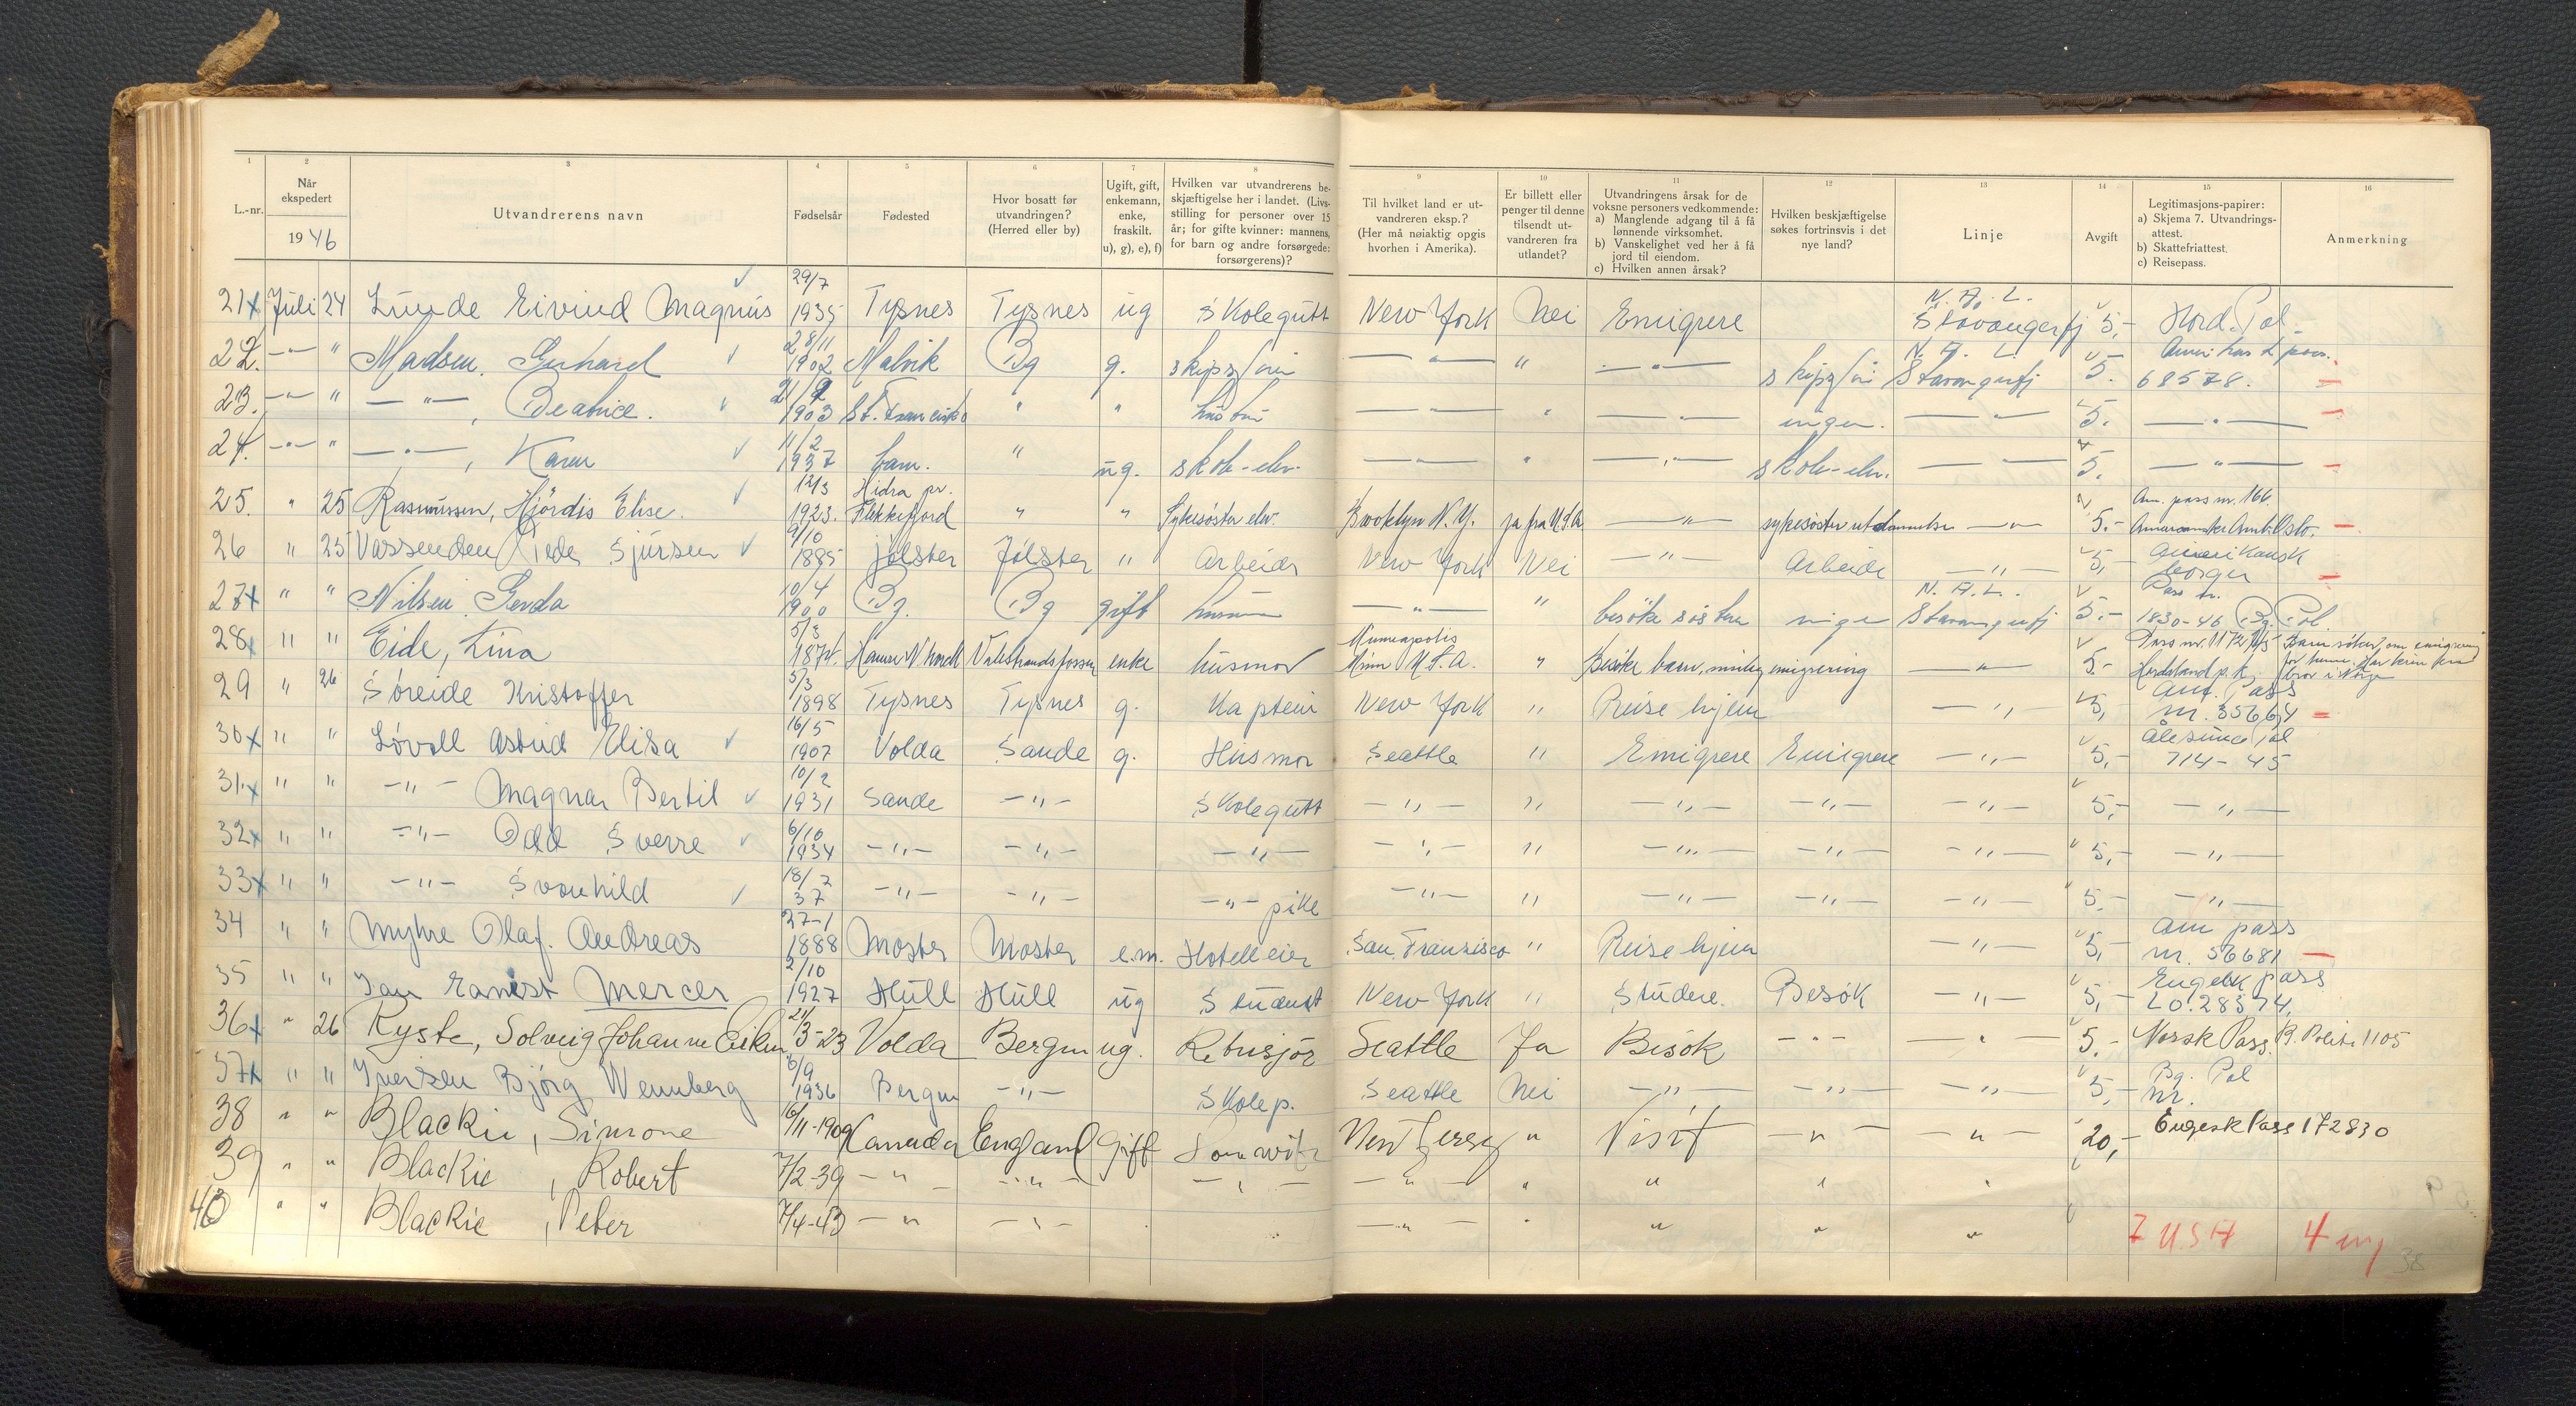 1 2 3 4 5 6 7 8 9 10 11 12 13 14 15 16
L.-nr.
Når ekspedert
1946
Utvandrerens navn
Fødselsår
Fødested
Hvor bosatt før utvandringen? (Herred eller by)
Ugift, gift, enkemann, enke, fraskilt. u), g), e), f)
Hvilken var utvandrerens beskjæftigelse her i landet. (Livsstilling for personer over 15 år; for gifte kvinner: mannens, for barn og andre forsørgede: forsørgerens)?
Til hvilket land er utvandreren eksp.? (Her må nøiaktig opgis hvorhen i Amerika).
Er billett eller penger til denne tilsendt utvandreren fra utlandet?
Utvandringens årsak for de voksne personers vedkommende: a) Manglende adgang til å få lønnende virksomhet. b) Vanskelighet ved her å få jord til eiendom. c) Hvilken annen årsak?
Hvilken beskjæftigelse søkes fortrinsvis i det nye land?
Linje
Avgift
Legitimasjons-papirer: a) Skjema 7. Utvandringsattest. b) Skattefriattest. c) Reisepass.
Anmerkning
21x Juli 24 Lunde Eivind Magnus 29/7 1935 Tysnes Tysnes ug Skolegutt New York Nei Emigrere N. A. L. Stavangerfj 5,- Hord. Pol.
22. -"- " Madsen, Gerhard 28/11 1902 Malvik Bg g. -"- " -"- N. A. L. Stavangerfj 5.- 68578.
23. -"- " -"-, Beatrice. 1903 St. Francisko " " -"- " -"- ingen. -"- 5. -"-
24. -"- " -"-, Karen 11/2 1937 " ug. skole-elev. -"- " -"- skole-elev. -"- 5. -"-
25. " 25 Rasmussen, Hjördis Elise. 12/3 1923. Hidra pr. Flekkefjord " " Sykesöster elev. Brooklyn N. Y. ja fra U.S.A -"- sykesöster utdannelse -"- 5.- Am. pass nr. 166 Oslo.
26 " 25 Vassenden Peder Sjursen 9/10 1885 Jølster Jølster " Arbeider New York Nei -"- Arbeide -"- 5,- Amerikansk borger
27x " " Nilsen Gerda 10/4 1900 Bg. Bg gift husmor -"- " besöke söster ingen N. A. L. Stavangerfj 5.- Pass nr. 1830-46 Bg. Pol.
28x " " Eide, Lina 5/3 1874. Hamre N. Valestrandsfossen enke husmor Minneapolis Minn U.S.A. " Besöke barn, mulig emigrering -"- 5.- Hordaland p.k.
29 " 26 Søreide Kristoffer 5/3 1898 Tysnes Tysnes g. Kaptein New York " Reise hjem -"- 5,- Am. Pass nr. 35664
30x " " Løvoll Astrid Elisa 16/5 1907 Volda Sande g. Husmor Seattle " Emigrere Emigrere -"- 5,- Ålesund Pol 714-45
31x " " -"- Magnar Bertil 10/2 1931 Sande -"- Skolegutt -"- " -"- -"- -"- 5,- -"-
32x " " -"- Odd Sverre 6/10 1934 -"- -"- -"- -"- " -"- -"- -"- 5,- -"-
33x " " -"- Svanhild 18/7 37 -"- -"- -"- pike -"- " -"- -"- -"- 5.- -"-
34 " " Myhre Olaf. Andreas 27-1 1888 Moster Moster e.m. Hotelleier San. Franzisco " Reise hjem -"- 5,- Am pass nr. 56681
35 " " Ian Ernest Mercer 2/10 1927 Hull Hull ug Student New York " Studere. Besøk -"- 5,- Engelsk pass L0.28374.
36x " 26 Ryste, Solveig Johanne 21/3-23 Volda Bergen ug. Seattle Ja Besök -"- -"- 5.- Norsk Pass. B. Politi 1105
37x " " Iversen Bjørg Wennberg 6/9 1936 Bergen -"- Skolep. Seattle Nei -"- -"- -"- 5,- Bg. Pol nr.
38 " " Blackie, Simone 16/11-1909 Canada England Gift New Jersey " Visit -"- -"- 20,- Engesk Pass 172830
39 " " Blackie, Robert 7/2-39 -"- -"- -"- -"- " " " "
40 " " Blackie, Peter 7/4-43 -"- -"- -"- " " " "
7 USA 4 
38